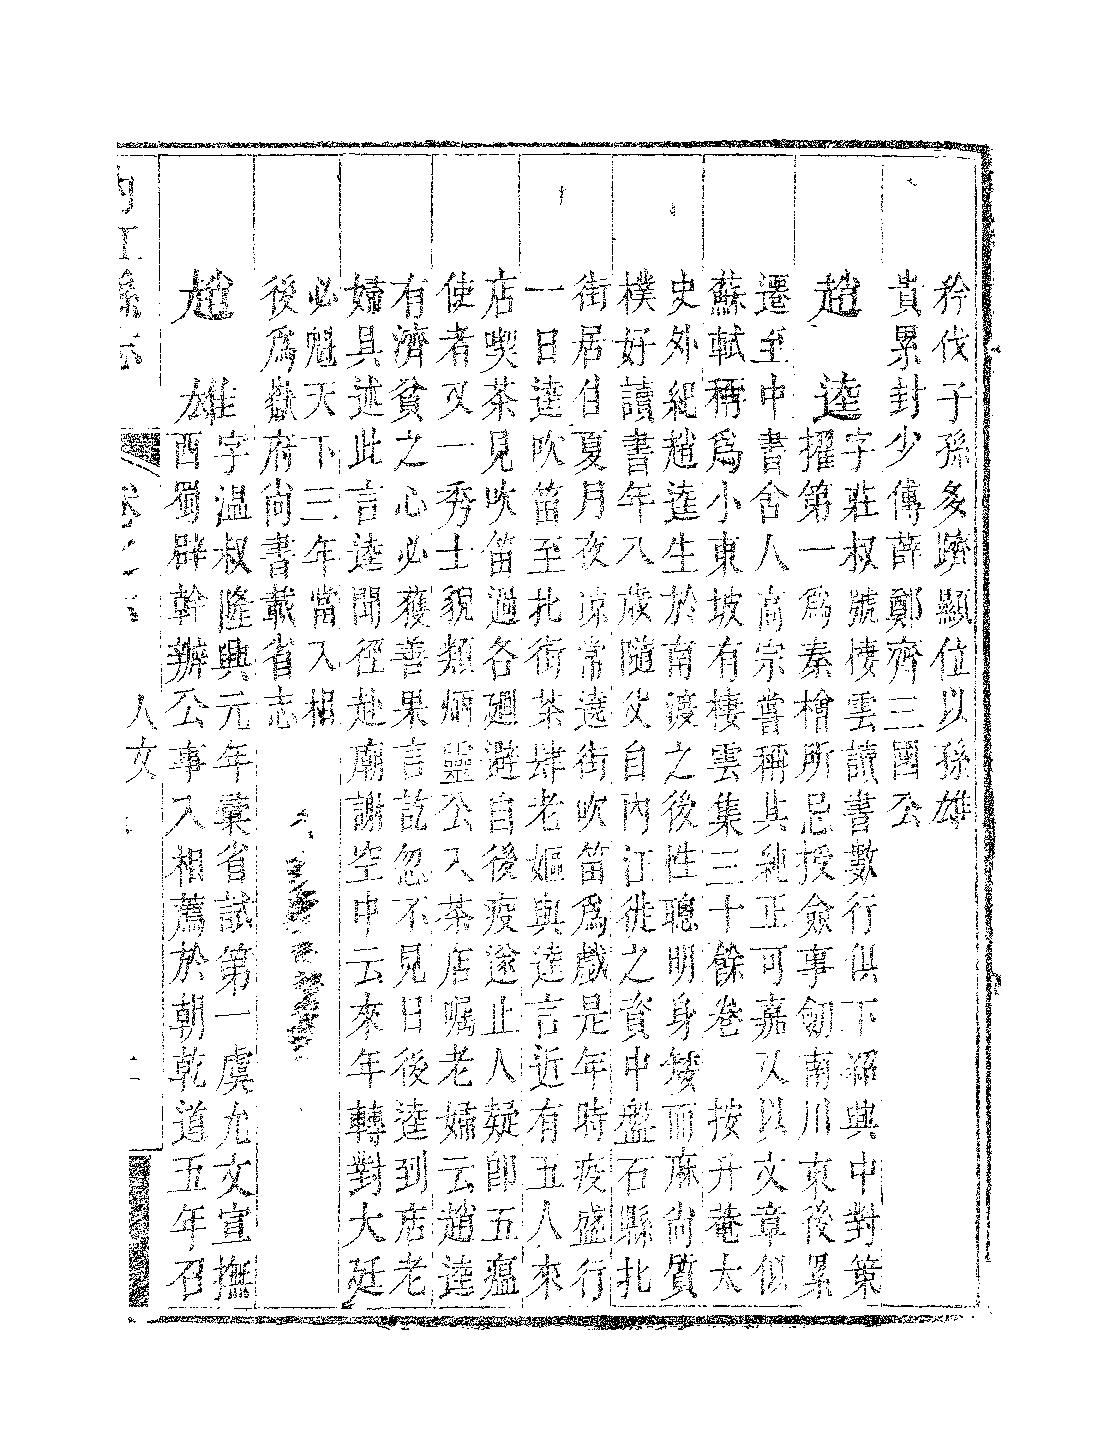 矜伐子孫多躋顯位以孫雄
貴累封少傅薛鄭齊三國公
趙逵字莊叔號棲雲讀書數行俱下紹興中對策
擢第一爲秦檜所忌授僉事劒南川東後累
遷至中書舍人高宗嘗稱其純正可嘉又以文章似
蘇軾稱爲小東坡有棲雲集三十餘卷 按升菴太
史外紀趙逵生於南渡之後性聰明身矮而麻尚質
樸好讀書年八歲隨父自內江徙之資中盤石縣北
街居住夏月夜凉常遶街吹笛爲戲是年時疫盛行
一日逵吹笛至北街茶肆老嫗與逵言近有五人來
店喫茶見吹笛過各廻避自後疫遂止人疑卽五瘟
使者又一秀士貌類炳靈公入茶店囑老婦云趙逵
有濟貧之心必獲善果言訖忽不見日後逵到店老
婦具述此言逵聞徑赴廟謝空中云來年轉對大廷
必魁天下三年當入相
後爲嶽府尚書載省志
趙雄字温叔隆興元年彙省試第一虞允文宣撫
西蜀辟幹辦公事入相薦於朝乾道五年召
內江縣志 卷之 人文